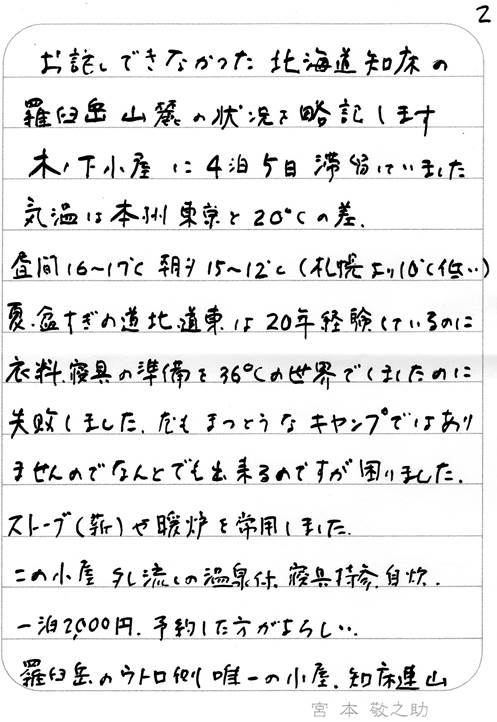 2
お話しできなかった 北海道知床の
羅臼岳山麓の状況を略記します
木ノ下小屋に4泊5日滞留していました
気温は本州東京と20℃の差.
昼間16〜17℃ 朝夕15〜12℃(札幌より10℃低い)
夏.盆すぎの道北.道東は20年経験しているのに
衣料.寝具の準備を36℃の世界でしましたのに
失敗しました.だもまっとうなキャンプではあり
ませんのでなんとでも出来るのですが困りました.
ストーブ(薪)や暖炉を常用しました.
この小屋 タレ流しの温泉付.寝具持参.自炊.
一泊2,000円.予約した方がよろしい.
羅臼岳のウトロ側唯一の小屋.知床連山
宮本敬之助